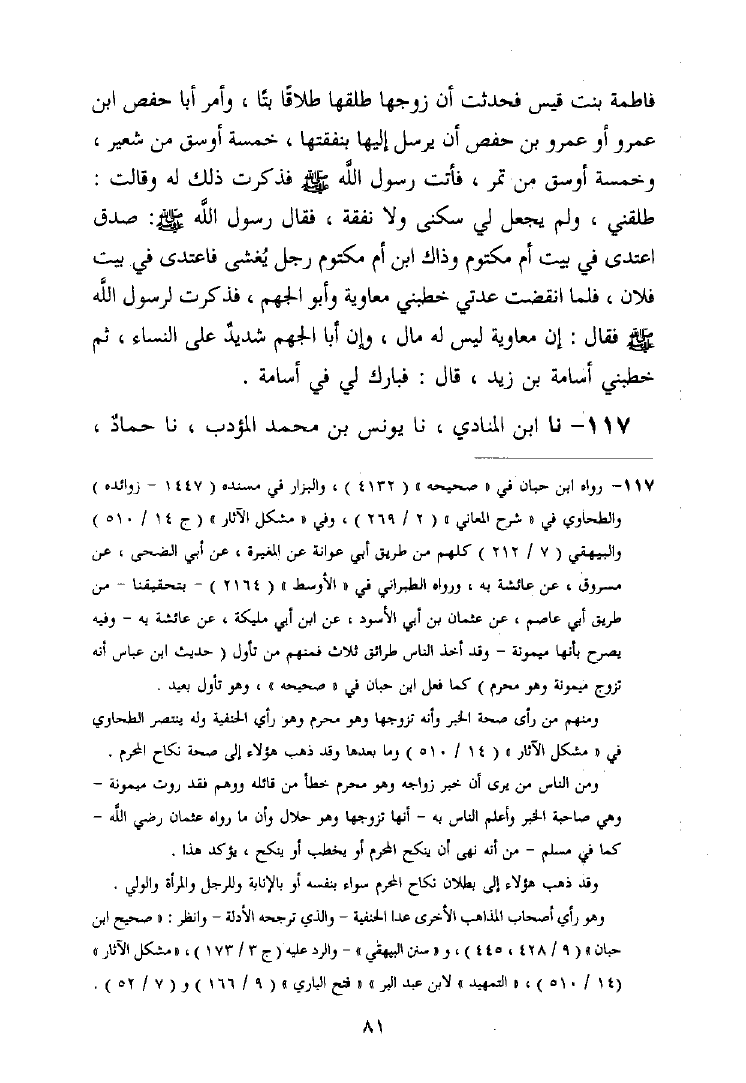 فاطمة بنت قيس فحدثت أن زوجها طلقها طلاقًا بتًا ، وأمر أبا حفص ابن
عمرو أو عمرو بن حفص أن يرسل إليها بنفقتها ، خمسة أوسق من شعير ،
وخمسة أوسق من تمر ، فأتت رسول اللَّه ﷺ فذكرت ذلك له وقالت :
طلقني ، ولم يجعل لي سكنى ولا نفقة ، فقال رسول اللَّه ﷺ: صدق
اعتدى في بيت أم مكتوم وذاك ابن أم مكتوم رجل يُغشى فاعتدى في بيت
فلان ، فلما انقضت عدتي خطبني معاوية وأبو الجهم ، فذكرت لرسول اللَّه
ﷺ فقال : إن معاوية ليس له مال ، وإن أبا الجهم شديدٌ على النساء ، ثم
خطبني أسامة بن زيد ، قال : فبارك لي في أسامة .
١١٧– نا ابن المنادي ، نا يونس بن محمد المؤدب ، نا حمادٌ ،
١١٧– رواه ابن حبان في « صحيحه » ( ٤١٣٢ ) ، والبزار في مسنده ( ١٤٤٧ – زوائده )
والطحاوي في « شرح المعاني » ( ٢ / ٢٦٩ ) ، وفي « مشكل الآثار » ( ج ١٤ / ٥١٠ )
والبيهقي ( ٧ / ٢١٢ ) كلهم من طريق أبي عوانة عن المغيرة ، عن أبي الضحى ، عن
مسروق ، عن عائشة به ، ورواه الطبراني في « الأوسط » ( ٢١٦٤ ) – بتحقيقنا – من
طريق أبي عاصم ، عن عثمان بن أبي الأسود ، عن ابن أبي مليكة ، عن عائشة به – وفيه
يصرح بأنها ميمونة – وقد أخذ الناس طرائق ثلاث فمنهم من تأول ( حديث ابن عباس أنه
تزوج ميمونة وهو محرم ) كما فعل ابن حبان في « صحيحه » ، وهو تأول بعيد .
ومنهم من رأى صحة الخبر وأنه تزوجها وهو محرم وهو رأي الحنفية وله ينتصر الطحاوي
في « مشكل الآثار » ( ١٤ / ٥١٠ ) وما بعدها وقد ذهب هؤلاء إلى صحة نكاح المحرم .
ومن الناس من يرى أن خبر زواجه وهو محرم خطأ من قائله ووهم فقد روت ميمونة –
وهي صاحبة الخبر وأعلم الناس به – أنها تزوجها وهو حلال وأن ما رواه عثمان رضي اللَّه –
كما في مسلم – من أنه نهى أن ينكح المحرم أو يخطب أو ينكح ، يؤكد هذا .
وقد ذهب هؤلاء إلى بطلان نكاح المحرم سواء بنفسه أو بالإنابة وللرجل والمرأة والولي .
وهو رأي أصحاب المذاهب الأخرى عدا الحنفية – والذي ترجحه الأدلة – وانظر : « صحيح ابن
حبان » ( ٩ / ٤٢٨ ، ٤٤٥ ) ، و « سنن البيهقي » – والرد عليه ( ج ٣ / ١٧٣ ) ، « مشكل الآثار »
( ١٤ / ٥١٠ ) ، « التمهيد » لابن عبد البر » « فتح الباري » ( ٩ / ١٦٦ ) و ( ٧ / ٥٢ ) .
٨١